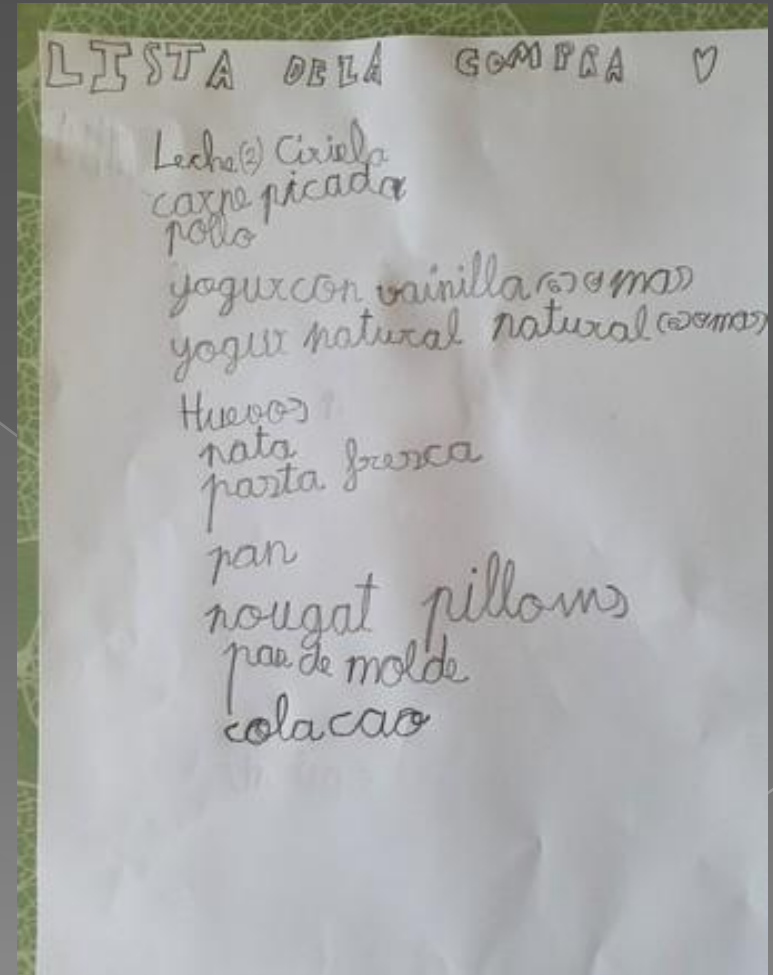 LISTA DE LA COMPRA ♡
Leche(2) Ciruela
carne picada
pollo
yogur con vainilla (2) o mas
yogur natural natural (2) o mas
Huevos
nata
pasta fresca
pan
nougat pillows
pan de molde
colacao